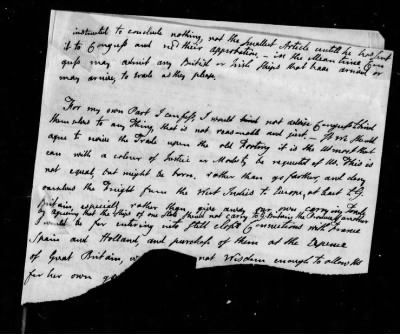 instructed to conclude nothing, not the smallest Article until he has sent
it to Congress and had their approbation. — in the Mean time Con
gress may admit any British or Irish Ships that have arrived, or
may arrive, to trade as they please.
For my own Part I confess I would not advise Congress to bind
themselves to any thing, that is not reasonable and just. — If we should
agree to revive the Trade upon the old Footing it is the utmost that
can with a colour of Justice or Modesty be requested of Us. This is
not equal, but might be born, rather than go farther, and deny
ourselves the Freight from the West Indies to Europe, at least to G.
Britain, especially rather than give away our own carrying Trade,
by agreeing that the Ships of one State should not carry to G. Britain the Produce of another
I would be for entering into still closer Connections with France
Spain and Holland, and purchase of them at the Expence
of Great Britain, not Wisdom enough to allow Us
for her own